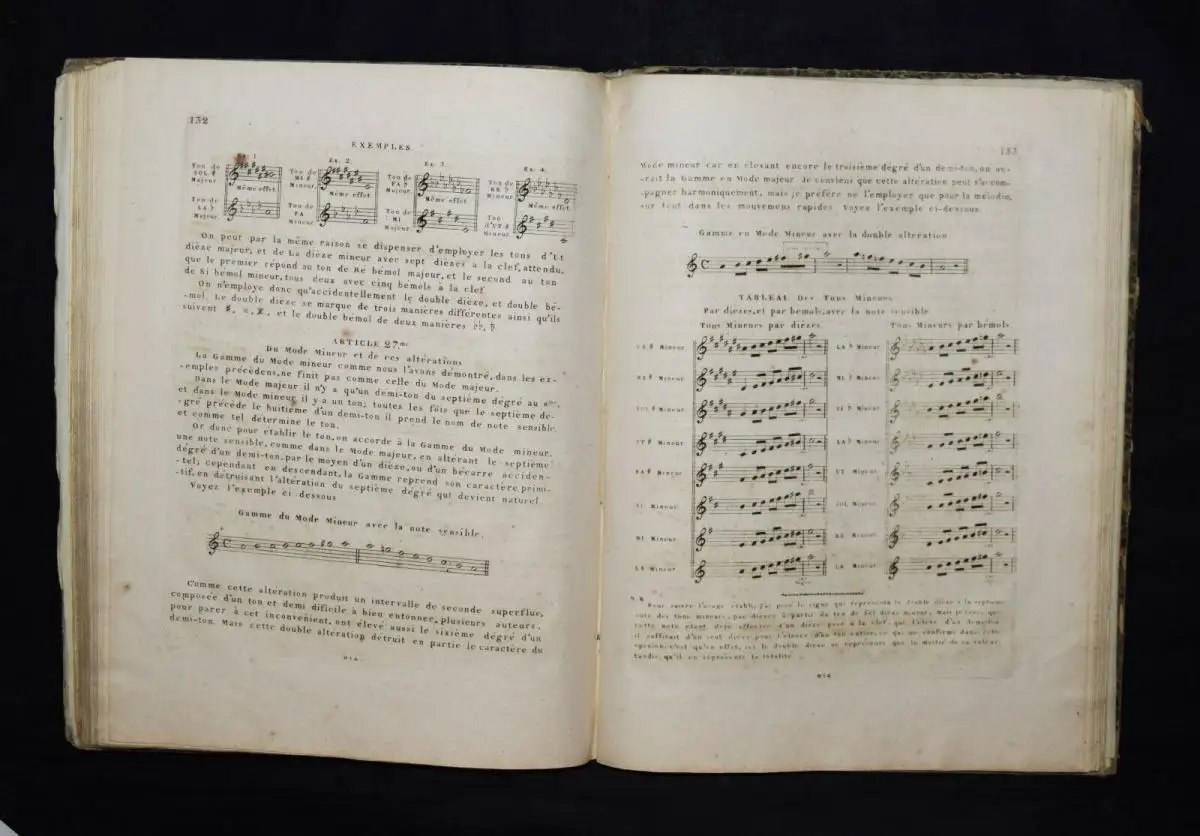 132
EXEMPLES
Ex. 1
Ex. 2.
Ex. 3
Ex. 4.
Ton de SOL # Majeur
Même effet.
Ton de LA b Majeur
Ton de MI # Mineur
Même effet.
Ton de FA Mineur
Ton de FA b Majeur
Même effet.
Ton de MI Majeur
Ton de RE b Mineur
Même effet.
Ton d'UT # Mineur
On peut par la même raison se dispenser d'employer les tons d'Ut
dièze majeur, et de La dièze mineur avec sept dièzes a la clef, attendu,
que le premier répond au ton de Ré bémol majeur, et le second au ton
de Si bémol mineur, tous deux avec cinq bémols à la clef.
On n'employe donc qu'accidentellement le double dièze, et double bé-
-mol. Le double dieze se marque de trois manières différentes ainsi qu'ils
suivent et le double bémol de deux manières
ARTICLE 27.me
Du Mode Mineur et de ces altérations
La Gamme du Mode mineur comme nous l'avons démontré, dans les ex-
-emples précédens, ne finit pas comme celle du Mode majeur.
Dans le Mode majeur il n'y a qu'un demi-ton du septième dégré au
et dans le Mode mineur il y a un ton; toutes les fois que le septième dé-
-gré précède le huitième d'un demi-ton il prend le nom de note sensible.
et comme tel détermine le ton.
Or donc pour établir le ton, on accorde à la Gamme du Mode mineur.
une note sensible, comme dans le Mode majeur, en altérant le septième
dégré d'un demi-ton, par le moyen d'un dièze, ou d'un bécarre acciden-
-tel; cependant en descendant, la Gamme reprend son caractère primi-
-tif, en détruisant l'altération du septième dégré qui devient naturel.
Voyez l'exemple ci dessous
Gamme du Mode Mineur avec la note sensible.
Comme cette altération produit un intervalle de seconde superflue,
composée d'un ton et demi dificile à bien entonner, plusieurs auteurs.
pour parer à cet inconvenient, ont élevé aussi le sixième dégré d'un
demi-ton. Mais cette double altération détruit en partie le caractère du
133
Mode mineur car en elevant encore le troisième dégré d'un demi-ton, on au-
-rait la Gamme en Mode majeur. Je conviens que cette altération peut s'accom-
-pagner harmoniquement, mais je préfère ne l'employer que pour la mélodie,
sur tout dans les mouvemens rapides Voyez l'exemple ci-dessous
Gamme en Mode Mineur avec la double altération
TABLEAU Des Tons Mineurs
Par dièzes, et par bémols, avec la note sensible
Tons Mineurs par dièzes.
Tons Mineurs par bémols
LA # Mineur
LA b Mineur
RE # Mineur
MI b Mineur
SOL # Mineur
SI b Mineur
UT # Mineur
FA # Mineur
UT Mineur
SI Mineur
SOL Mineur
MI Mineur
RE Mineur
LA Mineur
LA Mineur
N B
Pour suivre l'usage établi, j'ai posé le signe qui represente le double dièze a la septieme
note des tons mineurs par diezes